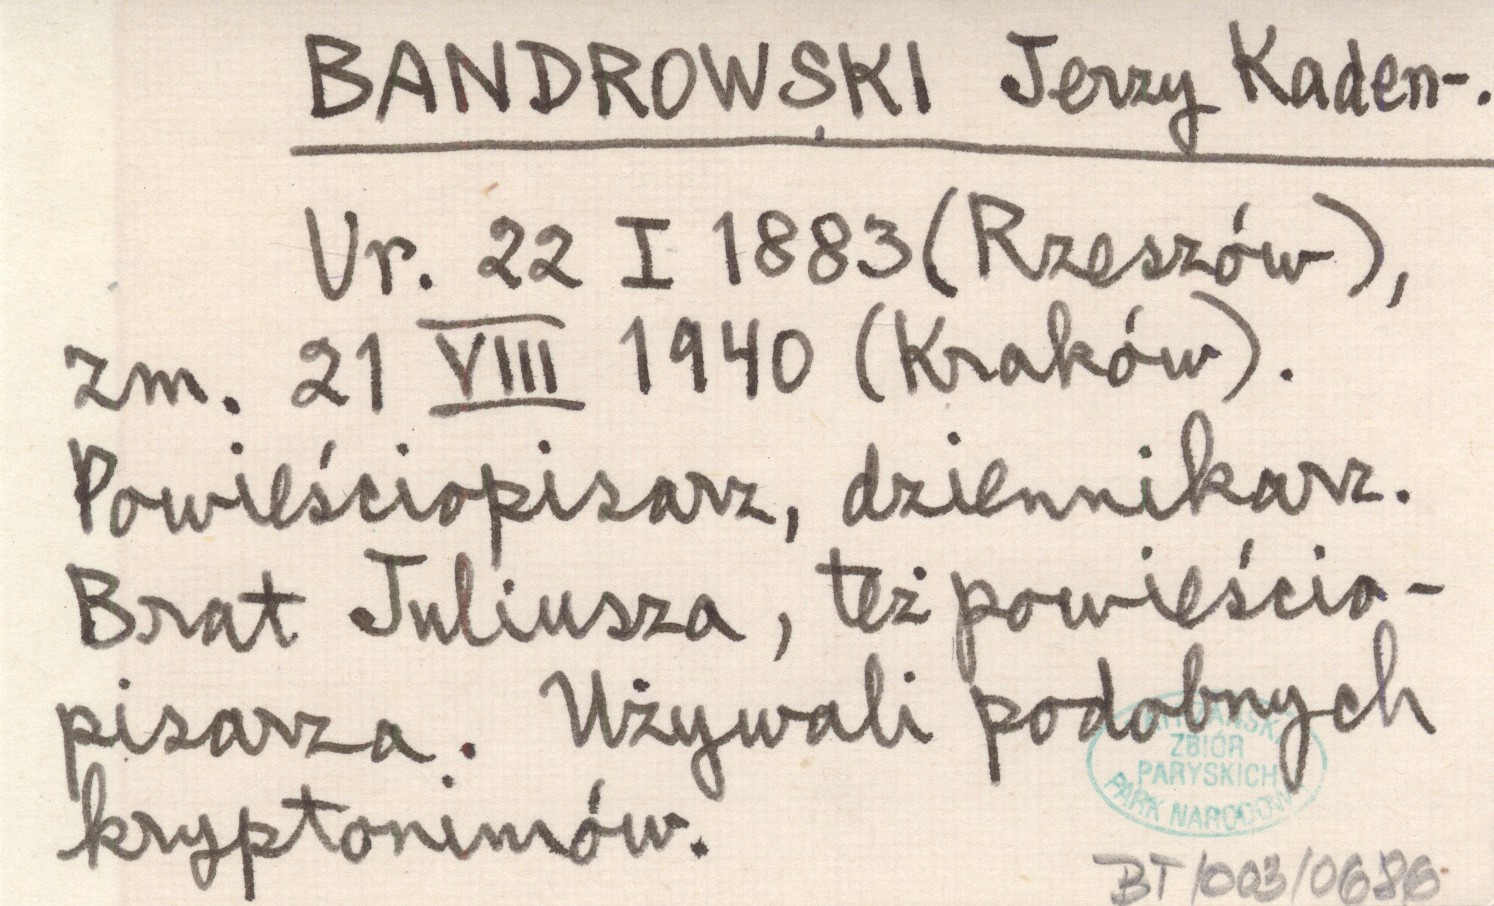 BANDROWSKI Jerzy Kaden-.
Ur. 22 I 1883 (Rzeszów),
zm. 21 VIII 1940 (Kraków).
Powieściopisarz, dziennikarz.
Brat Juliusza, też powieścio-
pisarza. Używali podobnych
kryptonimów.
ZBIÓR
PARYSKICH
PARK NARODOWY
BT/003/0686